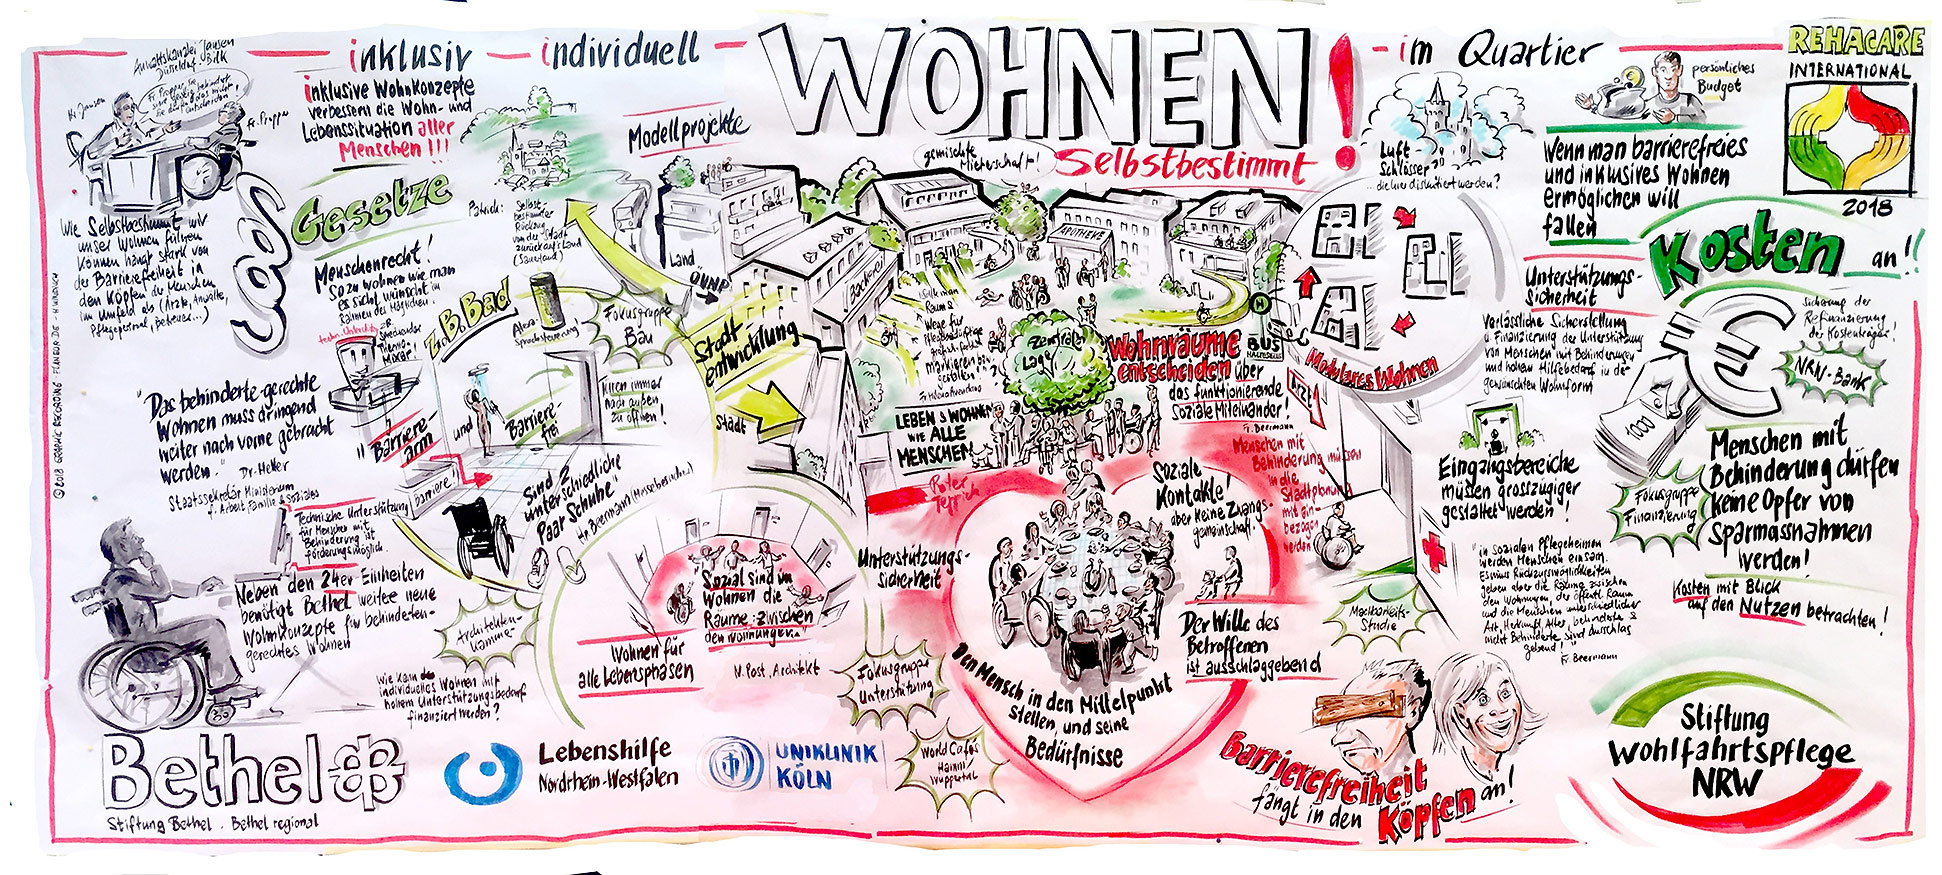 inklusiv – individuell – WOHNEN! – im Quartier
Selbstbestimmt
REHACARE
INTERNATIONAL
2018
Anwaltskanzlei Jansen
Düsseldorf Bilk
Hr. Jansen
inklusive Wohnkonzepte
verbessern die Wohn- und
Lebenssituation aller
Menschen!!!
Modellprojekte
gemischte
Mieterschaft!
Luft
Schlösser?
...die hier diskutiert werden?
persönliches
Budget
Wenn man barrierefreies
und inklusives Wohnen
ermöglichen will
fallen
Kosten an!!
§§§
Gesetze
Wie Selbstbestimmt wir
unser Wohnen führen
können hängt stark von
der Barrierefreiheit in
den Köpfen der Menschen
im Umfeld ab (Ärzte, Anwälte,
Pflegepersonal, Betreuer...)
Menschenrecht!
So zu wohnen wie man
es sich wünscht im
Rahmen des Möglichen!
Patrick:
Selbst-
bestimmter
Rückzug
von der Stadt
zurück auf's Land
(Sauerland)
Land
ÖPNV
Stadt
entwicklung
Stadt
z.B. Bad
Alexa-
Sprachsteuerung
Fokusgruppe
Bau
Türen immer
nach außen
zu öffnen!
Barriere-
arm
und
Barriere
frei
Barriere!
Sind 2
unterschiedliche
Paar Schuhe"
Hr. Beermann (Messebesucher)
"Das behinderte-gerechte
Wohnen muss dringend
weiter nach vorne gebracht
werden"
Dr. Heller
Staatssekretär Ministerium
f. Arbeit Familie & Soziales
Technische Unterstützung
für Menschen mit
Behinderung ist
förderungsmöglich.
Neben den 24er Einheiten
benötigt Bethel weitere neue
Wohnkonzepte für behinderten-
gerechtes Wohnen
Architekten-
kammer
Wie kann
individuelles Wohnen mit
hohem Unterstützungsbedarf
finanziert werden?
Sozial sind im
Wohnen die
Räume zwischen
den Wohnungen..
Wohnen für
alle Lebensphasen
N. Post, Architekt
Bäckerei
APOTHEKE
Zentrale
Lage
LEBEN & WOHNEN
WIE ALLE
MENSCHEN
Wohnräume
entscheiden über
das funktionierende
Soziale Miteinander!
Fr. Beermann
H
BUS
HALTESTELLE
Modulares Wohnen
Arzt
Roter
Teppich
Menschen mit
Behinderung müssen
in die
Stadtplanung
mit ein-
bezogen
werden
Soziale
Kontakte!
aber keine Zwangs-
gemeinschaft.
Unterstützungs-
sicherheit
Der Wille des
Betroffenen
ist ausschlaggebend
Den Mensch in den Mittelpunkt
stellen, und seine
Bedürfnisse
Fokusgruppe
Unterstützung
World Cafés
Hamm/
Wuppertal
Machbarkeits-
Studie
Unterstützungs-
Sicherheit
Verlässliche Sicherstellung
u. Finanzierung der Unterstützung
von Menschen mit Behinderungen
und hohem Hilfebedarf in der
gewünschten Wohnform
Eingangsbereiche
müssen grosszügiger
gestaltet werden!
"in Sozialen Pflegeheimen
werden Menschen einsam.
Es muss Rückzugsmöglichkeiten
geben aber die Räume zwischen
den Wohnungen, der öffentl. Raum
und die Menschen unterschiedlicher
Art, Herkunft, Alter, behinderte &
nicht Behinderte sind ausschlag
gebend!"
Fr. Beermann
Sicherung der
Refinanzierung
der Kostenträger!
€
NRW-Bank
1000
Fokusgruppe
Finanzierung
Menschen mit
Behinderung dürfen
keine Opfer von
Sparmassnahmen
werden!
Kosten mit Blick
auf den Nutzen betrachten!
Barrierefreiheit
fängt in den Köpfen an!
Stiftung
Wohlfahrtspflege
NRW
Bethel
Stiftung Bethel . Bethel regional
Lebenshilfe
Nordrhein-Westfalen
UNIKLINIK
KÖLN